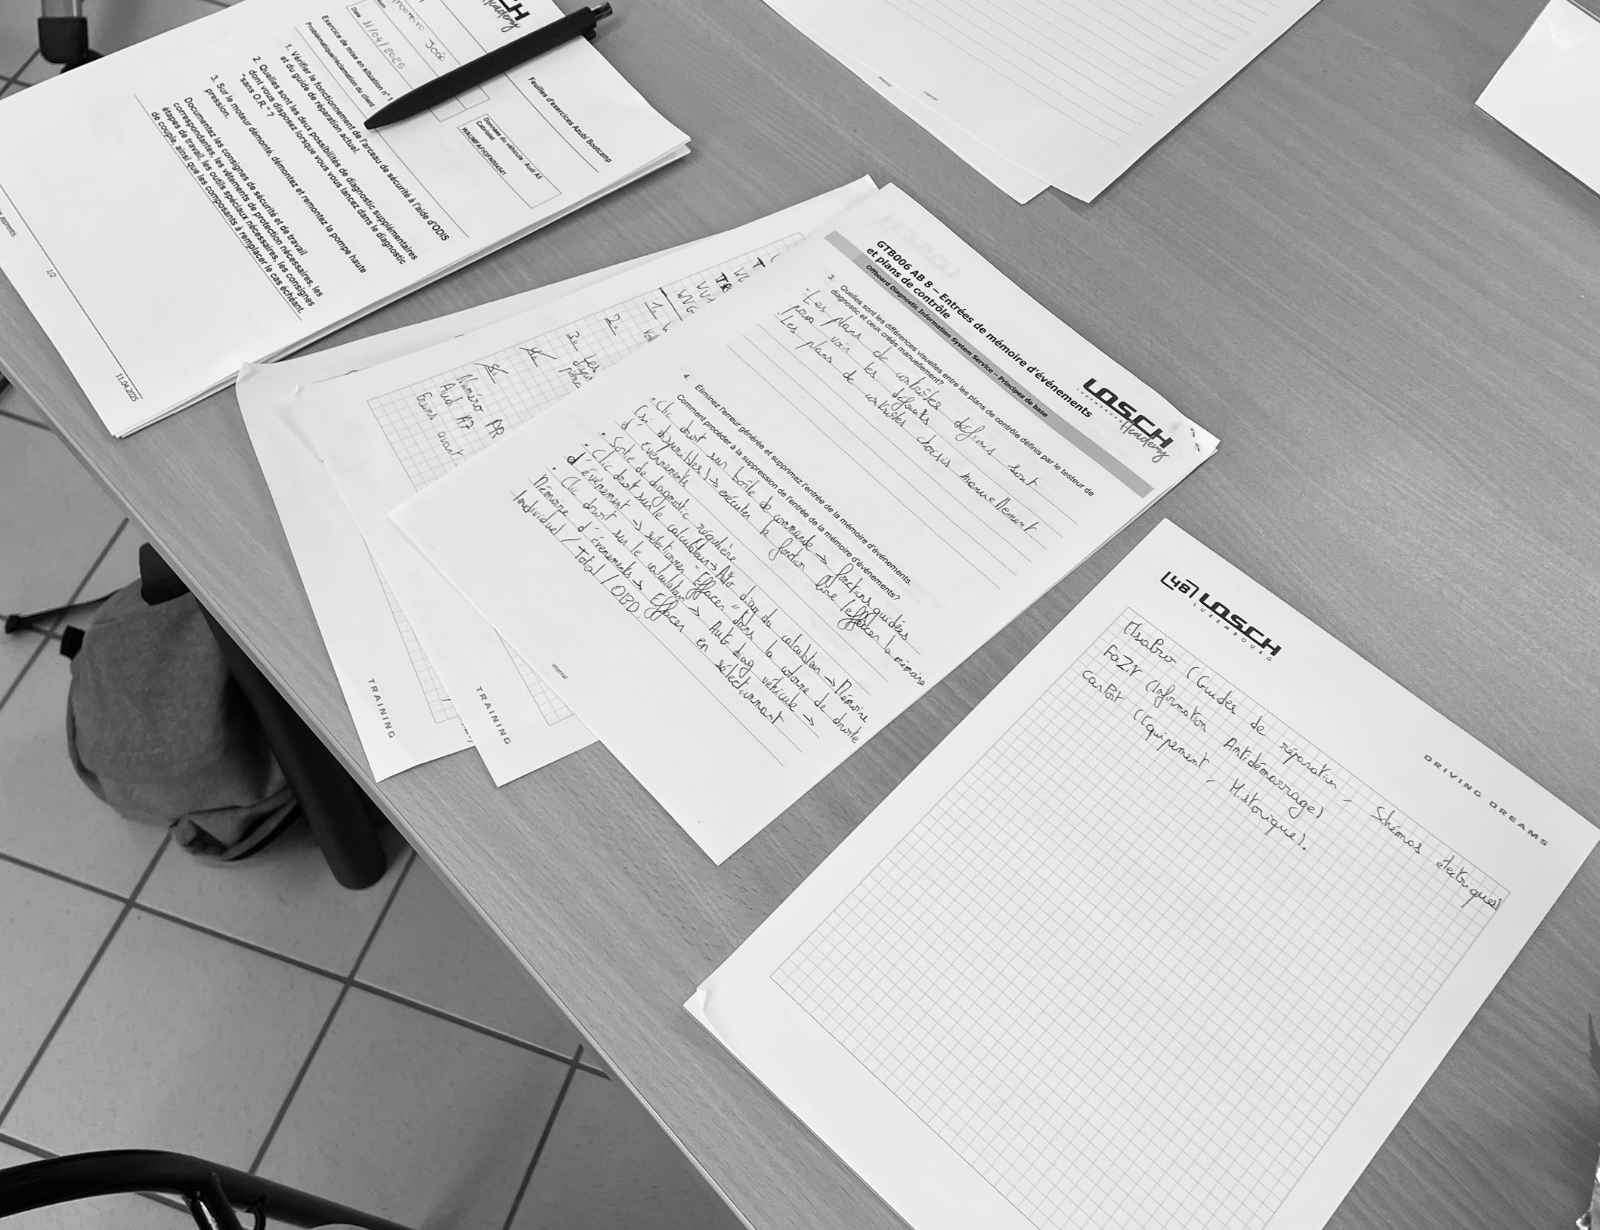 Academy
Feuilles d'exercices Azubi Bootcamp
João
Date
11/04/2025
Exercice de mise en situation n° 1
Problématique/réclamation du client
Données du véhicule : Audi A5
1. Vérifier le fonctionnement de l'arceau de sécurité à l'aide d'ODIS
et du guide de réparation actuel.
2. Quelles sont les deux possibilités de diagnostic supplémentaires
dont vous disposez lorsque vous vous lancez dans le diagnostic
"sans O.R." ?
3. Sur le moteur démonté, démontez et remontez la pompe haute
pression.
Documentez les consignes de sécurité et de travail
correspondantes, les vêtements de protection nécessaires, les
étapes de travail, les outils spéciaux nécessaires, les consignes
de couple, ainsi que les composants à remplacer le cas échéant.
1/2
11.04.2025
LOSCH
Academy
GTB006 AB 8 – Entrées de mémoire d'événements
et plans de contrôle
Offboard Diagnostic Information System Service – Principes de base
3. Quelles sont les différences visuelles entre les plans de contrôle définis par le testeur de
diagnostic et ceux créés manuellement?
- Les plans de contrôles définis sont
pour voir les défauts
- Les plans de contrôles choisis manuellement
4. Éliminez l'erreur générée et supprimez l'entrée de la mémoire d'événements.
Comment procéder à la suppression de l'entrée de la mémoire d'événements?
• Clic droit sur boîte de commande → fonctions guidées
(si disponibles) → exécuter la fonction lire/effacer la mémoire
d'événements
• Sortie de diagnostic régulière
• Clic droit sur le calculateur → Auto diag du calculateur → Mémoire
d'événement → sélectionner "Effacer" dans la colonne de droite
• Clic droit sur le calculateur → Auto diag véhicule →
Mémoire d'événements → Effacer en sélectionnant
Individuel / Total / OBD.
Numéro AR
Audi A7
Freins avant
TRAINING
TRAINING
[48] LOSCH
LUXEMBOURG
DRIVING DREAMS
ElsaPro (Guides de réparation - Schémas électriques)
FaZIT (Information Antidémarrage)
carPort (Equipement - Historique).